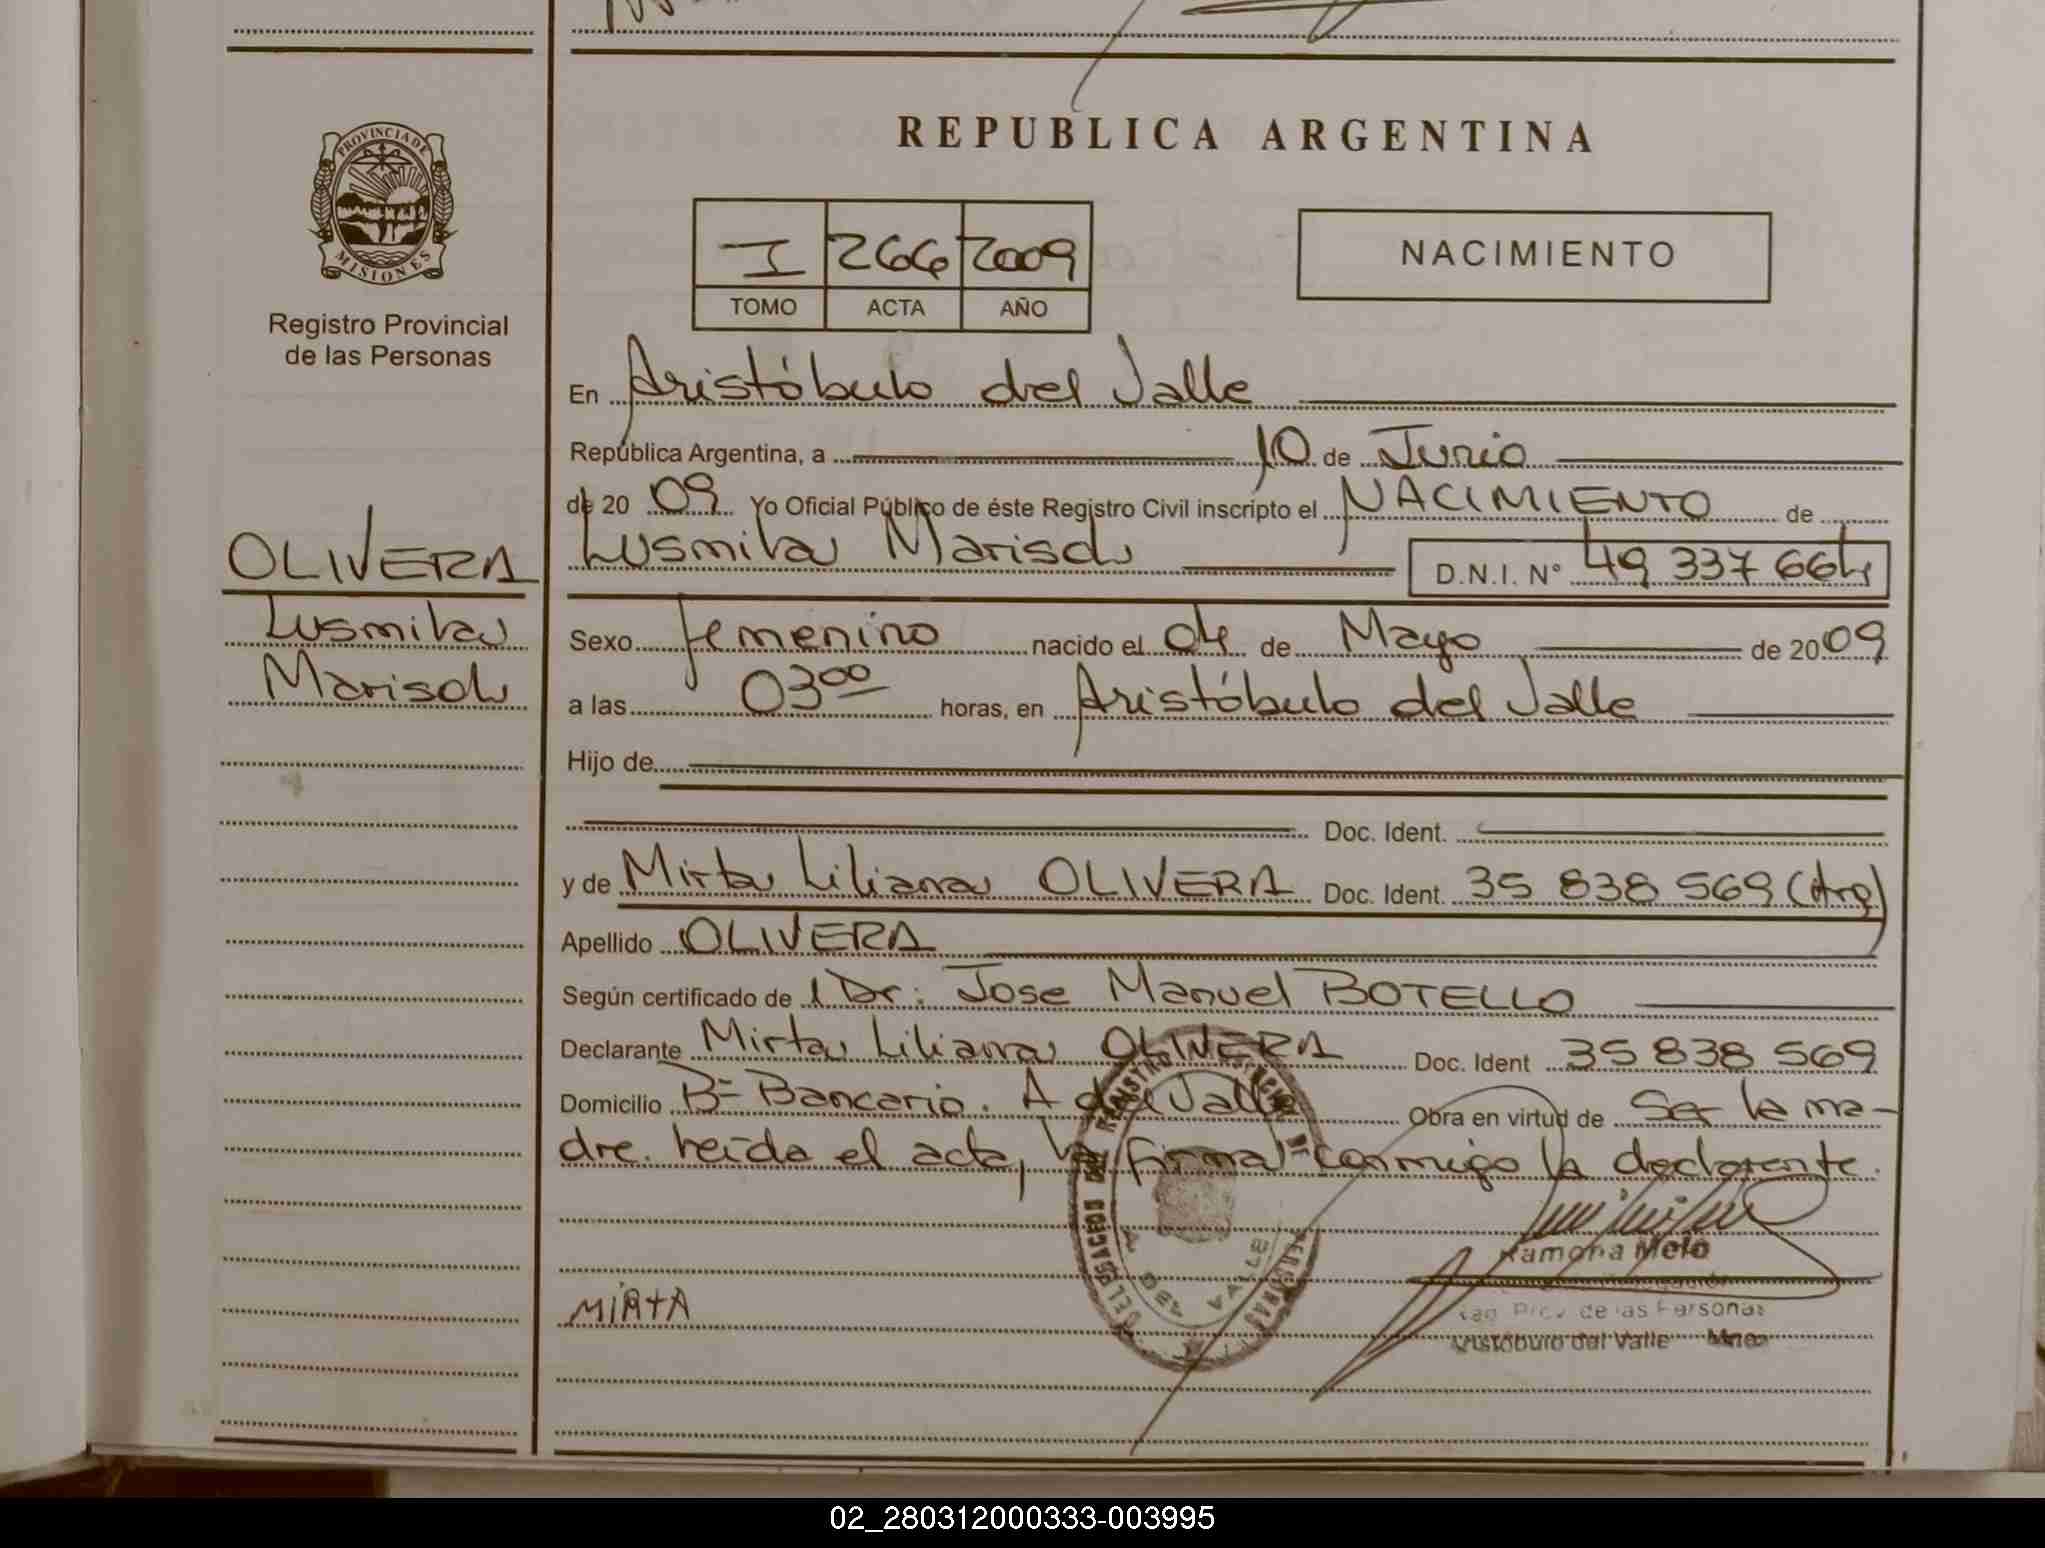 REPUBLICA ARGENTINA
PROVINCIA DE
MISIONES
Registro Provincial
de las Personas
I 266 2009
TOMO ACTA AÑO
NACIMIENTO
En Aristóbulo del Valle
República Argentina, a 10 de Junio
de 20 09 Yo Oficial Público de éste Registro Civil inscripto el NACIMIENTO de
Lusmila Marisol D.N.I. N° 49 337 664
OLIVERA
Lusmila
Marisol
Sexo femenino nacido el 04 de Mayo de 20 09
a las 03 00 horas, en Aristóbulo del Valle
Hijo de
Doc. Ident.
y de Mirta Liliana OLIVERA Doc. Ident. 35 838 569 (Arg)
Apellido OLIVERA
Según certificado de Dr: Jose Manuel BOTELLO
Declarante Mirta Liliana OLIVERA Doc. Ident 35 838 569
Domicilio B= Bancario. A del Valle Obra en virtud de Ser la ma-
dre. leida el acta, la firma conmigo la declarante.
A. DEL VALLE
Ramona Melo
Reg. Prov. de las Personas
Aristóbulo del Valle Mnes
MIRTA
02_280312000333-003995